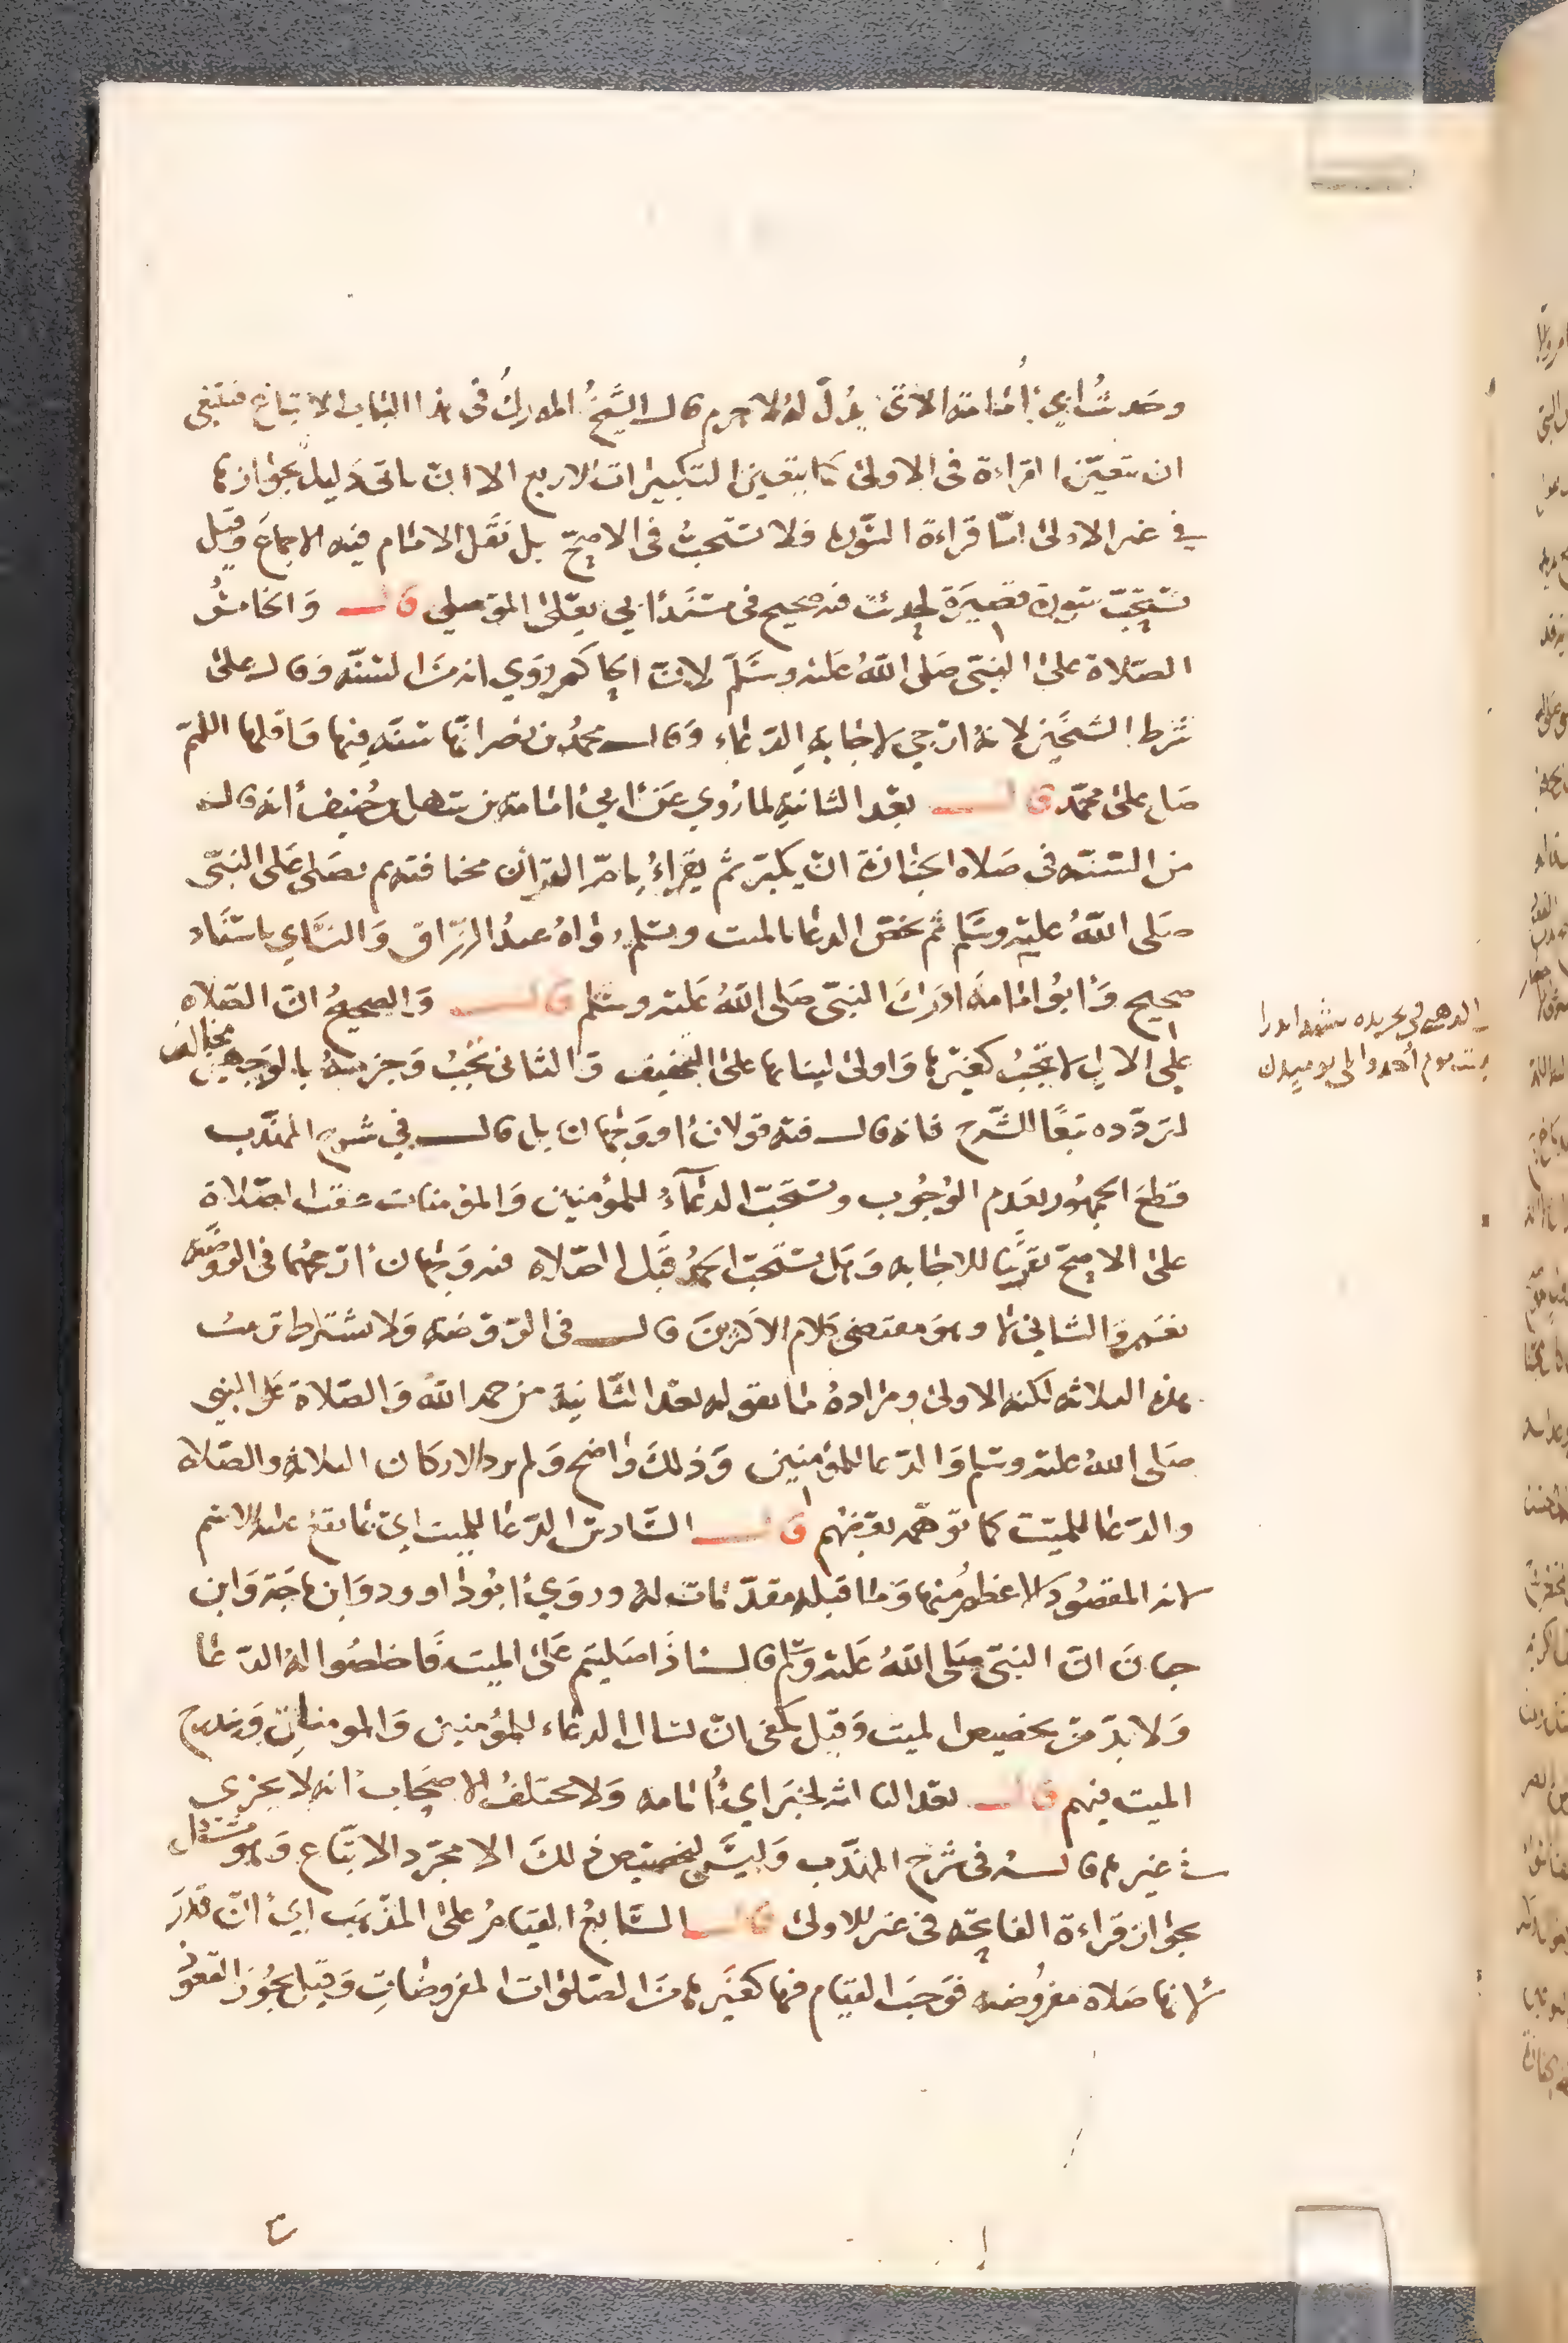 وحديث أبي أمامة الاتي يدل له لا جرم قال الشيخ المدرك في هذا الباب الاتباع فينبغي
ان تتعين القراءة في الاولى كما يتعين التكبيرات الاربع الا ان ياتي دليل بجوازها
في غير الاولى اما قراءة السورة فلا تستحب في الاصح بل نقل الامام فيه الاجماع وقيل
تستحب سورة قصيرة لحديث فيه صحيح في مسند أبي يعلى الموصلي قال والخامس
الصلاة على النبي صلى الله عليه وسلم لان الحاكم روي انه من السنة وقال على
شرط الشيخين لانه ارجي لاجابة الدعاء وقال محمد بن نصر انها سنة فيها واقلها اللهم
صل على محمد قال بعد الثانية لما روي عن أبي امامة بن سهل بن حنيف أنه قال
من السنة في صلاة الجنازة ان يكبر ثم يقراء بام القرآن مخافتة ثم يصلي على النبي
صلى الله عليه وسلم ثم يخص الدعا بالميت ويسلم رواه عبد الرزاق والنساي باسناد
صحيح وأبو امامة ادرك النبي صلى الله عليه وسلم قال والصحيح ان الصلاة
على الال لا تجب كغيرها واولى لبنائها على التخفيف والثاني تجب وجزمه بالوجهين مخالف
لتردده تبعا للشرح فانه قال فيه قولان أو وجهان بل قال في شرح المهذب
قطع الجمهور بعدم الوجوب وتستحب الدعآء للمؤمنين والمؤمنات عقب الصلاة
على الاصح تقريبا للاجابه وهل تستحب الحمد قبل الصلاه فيه وجهان أرجحهما في الروضة
نعم والثاني لا وهو مقتضى كلام الاكثرين قال في الروضه ولا يشترط ترتيب
هذه الثلاثه لكنه الاولى ومراده ما يقوله بعد الثانية من حمد الله والصلاة على النبي
صلى الله عليه وسلم والدعا للمؤمنين وذلك واضح ولم يرد الاركان الثلاثة والصلاه
والدعا للميت كما توهمه بعضهم قال السادس الدعا للميت اي بما يقع عليه الاسم
لانه المقصود الاعظم منها وما قبله مقدمات له وروي أبوداوود وابن ماجة وابن
حبان ان النبي صلى الله عليه وسلم قال اذا صليتم على الميت فاخلصوا له الدعا
ولا بد من تخصيص الميت وقيل يكفي ان لسال الدعاء للمؤمنين والمومنات ويندرج
الميت فيهم قال بعد الثالثة لخبر أبي أمامه ولا يختلف الاصحاب أنه لا يجزي
في غيرها قاله في شرح المهذب وليس لتخصيص ذلك الا مجرد الاتباع وهو مشكل
بجواز قراءة الفاتحه في غير الاولى قال السابع القيام على المذهب اي ان قدر
لانها صلاة مفروضه فوجب القيام فيها كغيرها من الصلوات المفروضات وقيل يجوز القعود
الذهبي في تجريده
يوم أحد